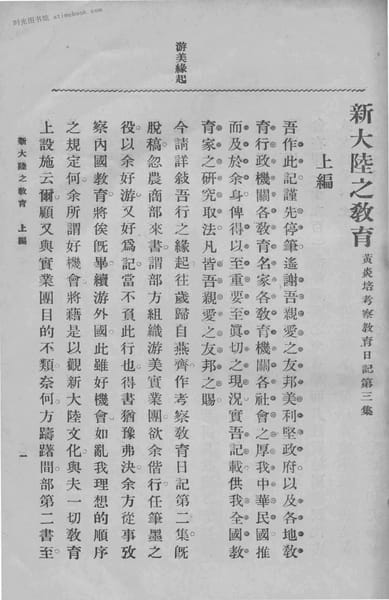 时光图书馆 stimebook.com
新大陸之教育 黃炎培考察教育日記第三集
上編
吾作此記謹先停筆遙謝吾親愛之友邦美利堅政府以及各地教
育行政機關各教育名家各教育機關各社會之厚我中華民國推
而及於余身俾得以至重要至眞切之現況實吾記載供我全國教
育家之研究取法凡皆吾親愛之友邦之賜
游美緣起
今請詳敍吾行之緣起往歲歸自燕齊作考察教育日記第二集旣
脫稿忽農商部來書謂部方組織游美實業團欲余偕行任筆墨之
役以余好游又好爲記當不負此行也得書猶豫弗決余方從事攷
察內國教育將俟旣畢續游外國此雖好機會如亂我理想的順序
之規定何余所謂好機會將藉是以觀新大陸文化與夫一切教育
上設施云爾顧又與實業團目的不類奈何方躊躇間部第二書至
新大陸之教育 上編
一